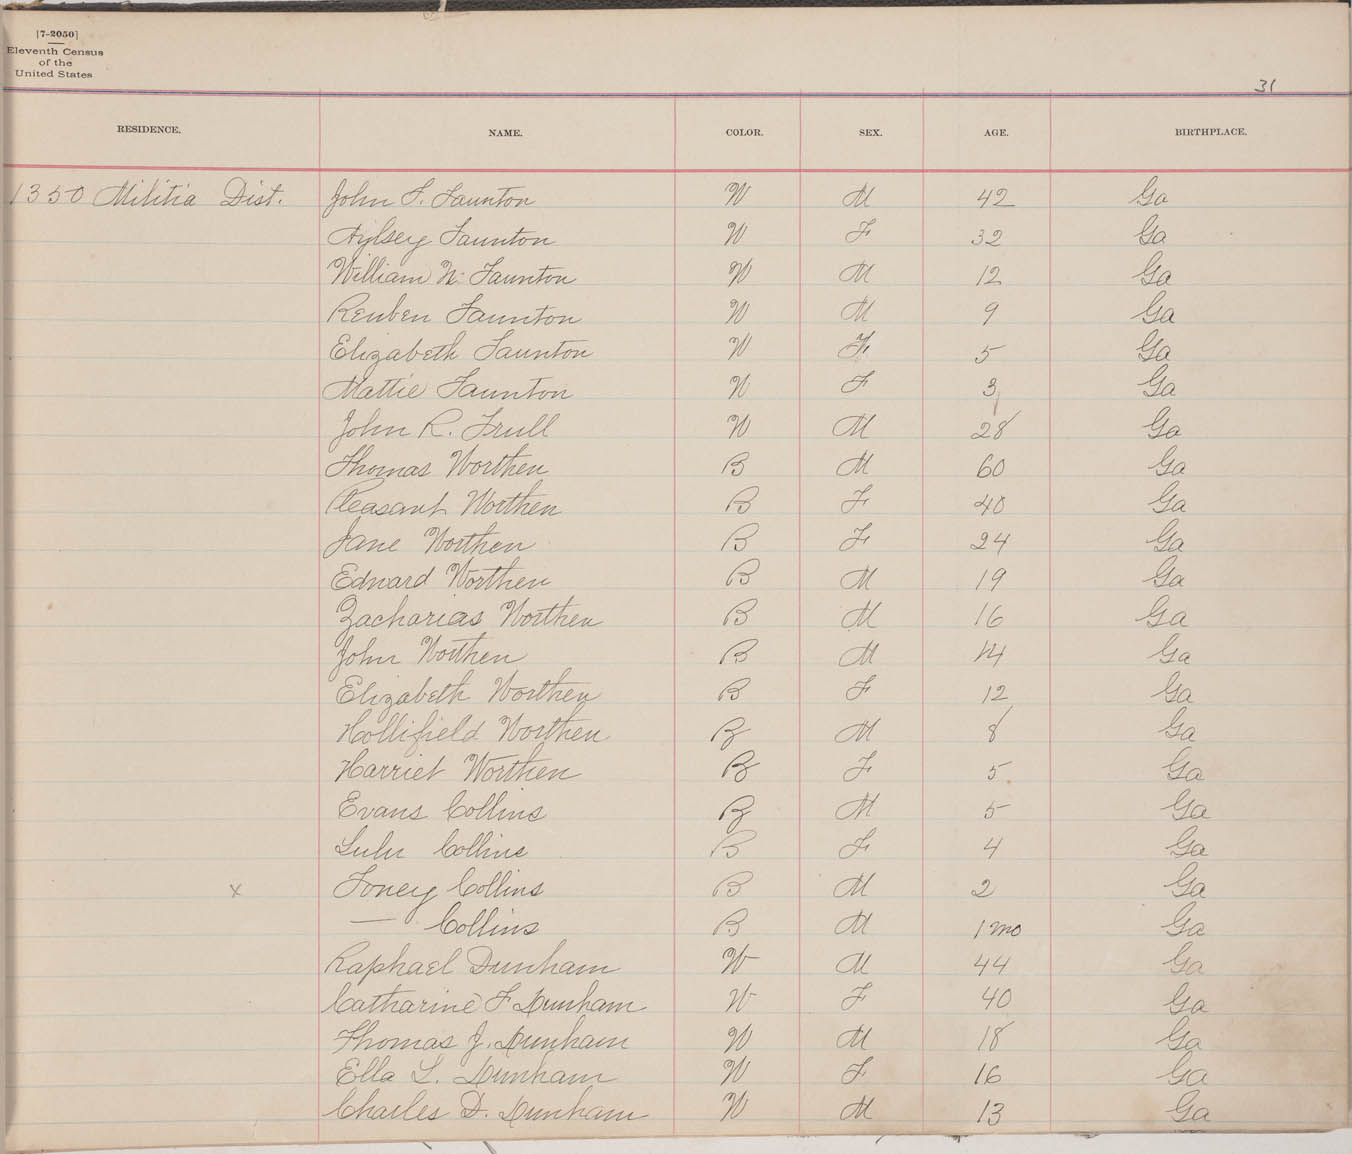 [7-2050]
Eleventh Census
of the
United States
31
RESIDENCE. NAME. COLOR. SEX. AGE. BIRTHPLACE.
1350 Militia Dist. John T. Taunton W M 42 Ga
Aylsey Taunton W F 32 Ga
William N. Taunton W M 12 Ga
Reuben Taunton W M 9 Ga
Elizabeth Taunton W F 5 Ga
Mattie Taunton W F 3 Ga
John R. Trull W M 28 Ga
Thomas Worthen B M 60 Ga
Pleasant Worthen B F 40 Ga
Jane Worthen B F 24 Ga
Edward Worthen B M 19 Ga
Zacharias Worthen B M 16 Ga
John Worthen B M 14 Ga
Elizabeth Worthen B F 12 Ga
Hollifield Worthen B M 8 Ga
Harriet Worthen B F 5 Ga
Evans Collins B M 5 Ga
Lulu Collins B F 4 Ga
x Toney Collins B M 2 Ga
— Collins B M 1 mo Ga
Raphael Dunham W M 44 Ga
Catharine F Dunham W F 40 Ga
Thomas J. Dunham W M 18 Ga
Ella L. Dunham W F 16 Ga
Charles D. Dunham W M 13 Ga